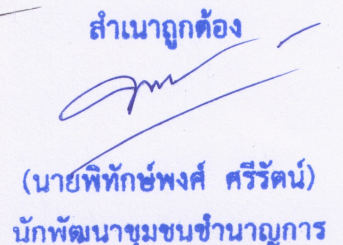 สำเนาถูกต้อง
(นายพิทักษ์พงศ์ ศรีรัตน์)
นักพัฒนาชุมชนชำนาญการ